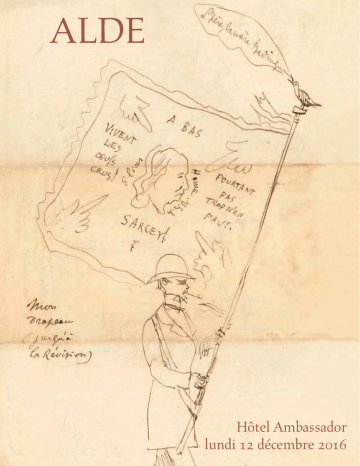 ALDE
A BAS
VIVENT
LES
ŒUFS
CRUS!
POURTANT
PAS
TROP N'EN
FAUT.
SARCEY!
Mon
Drapeau
(jusqu'à
la Révision)
Hôtel Ambassador
lundi 12 décembre 2016